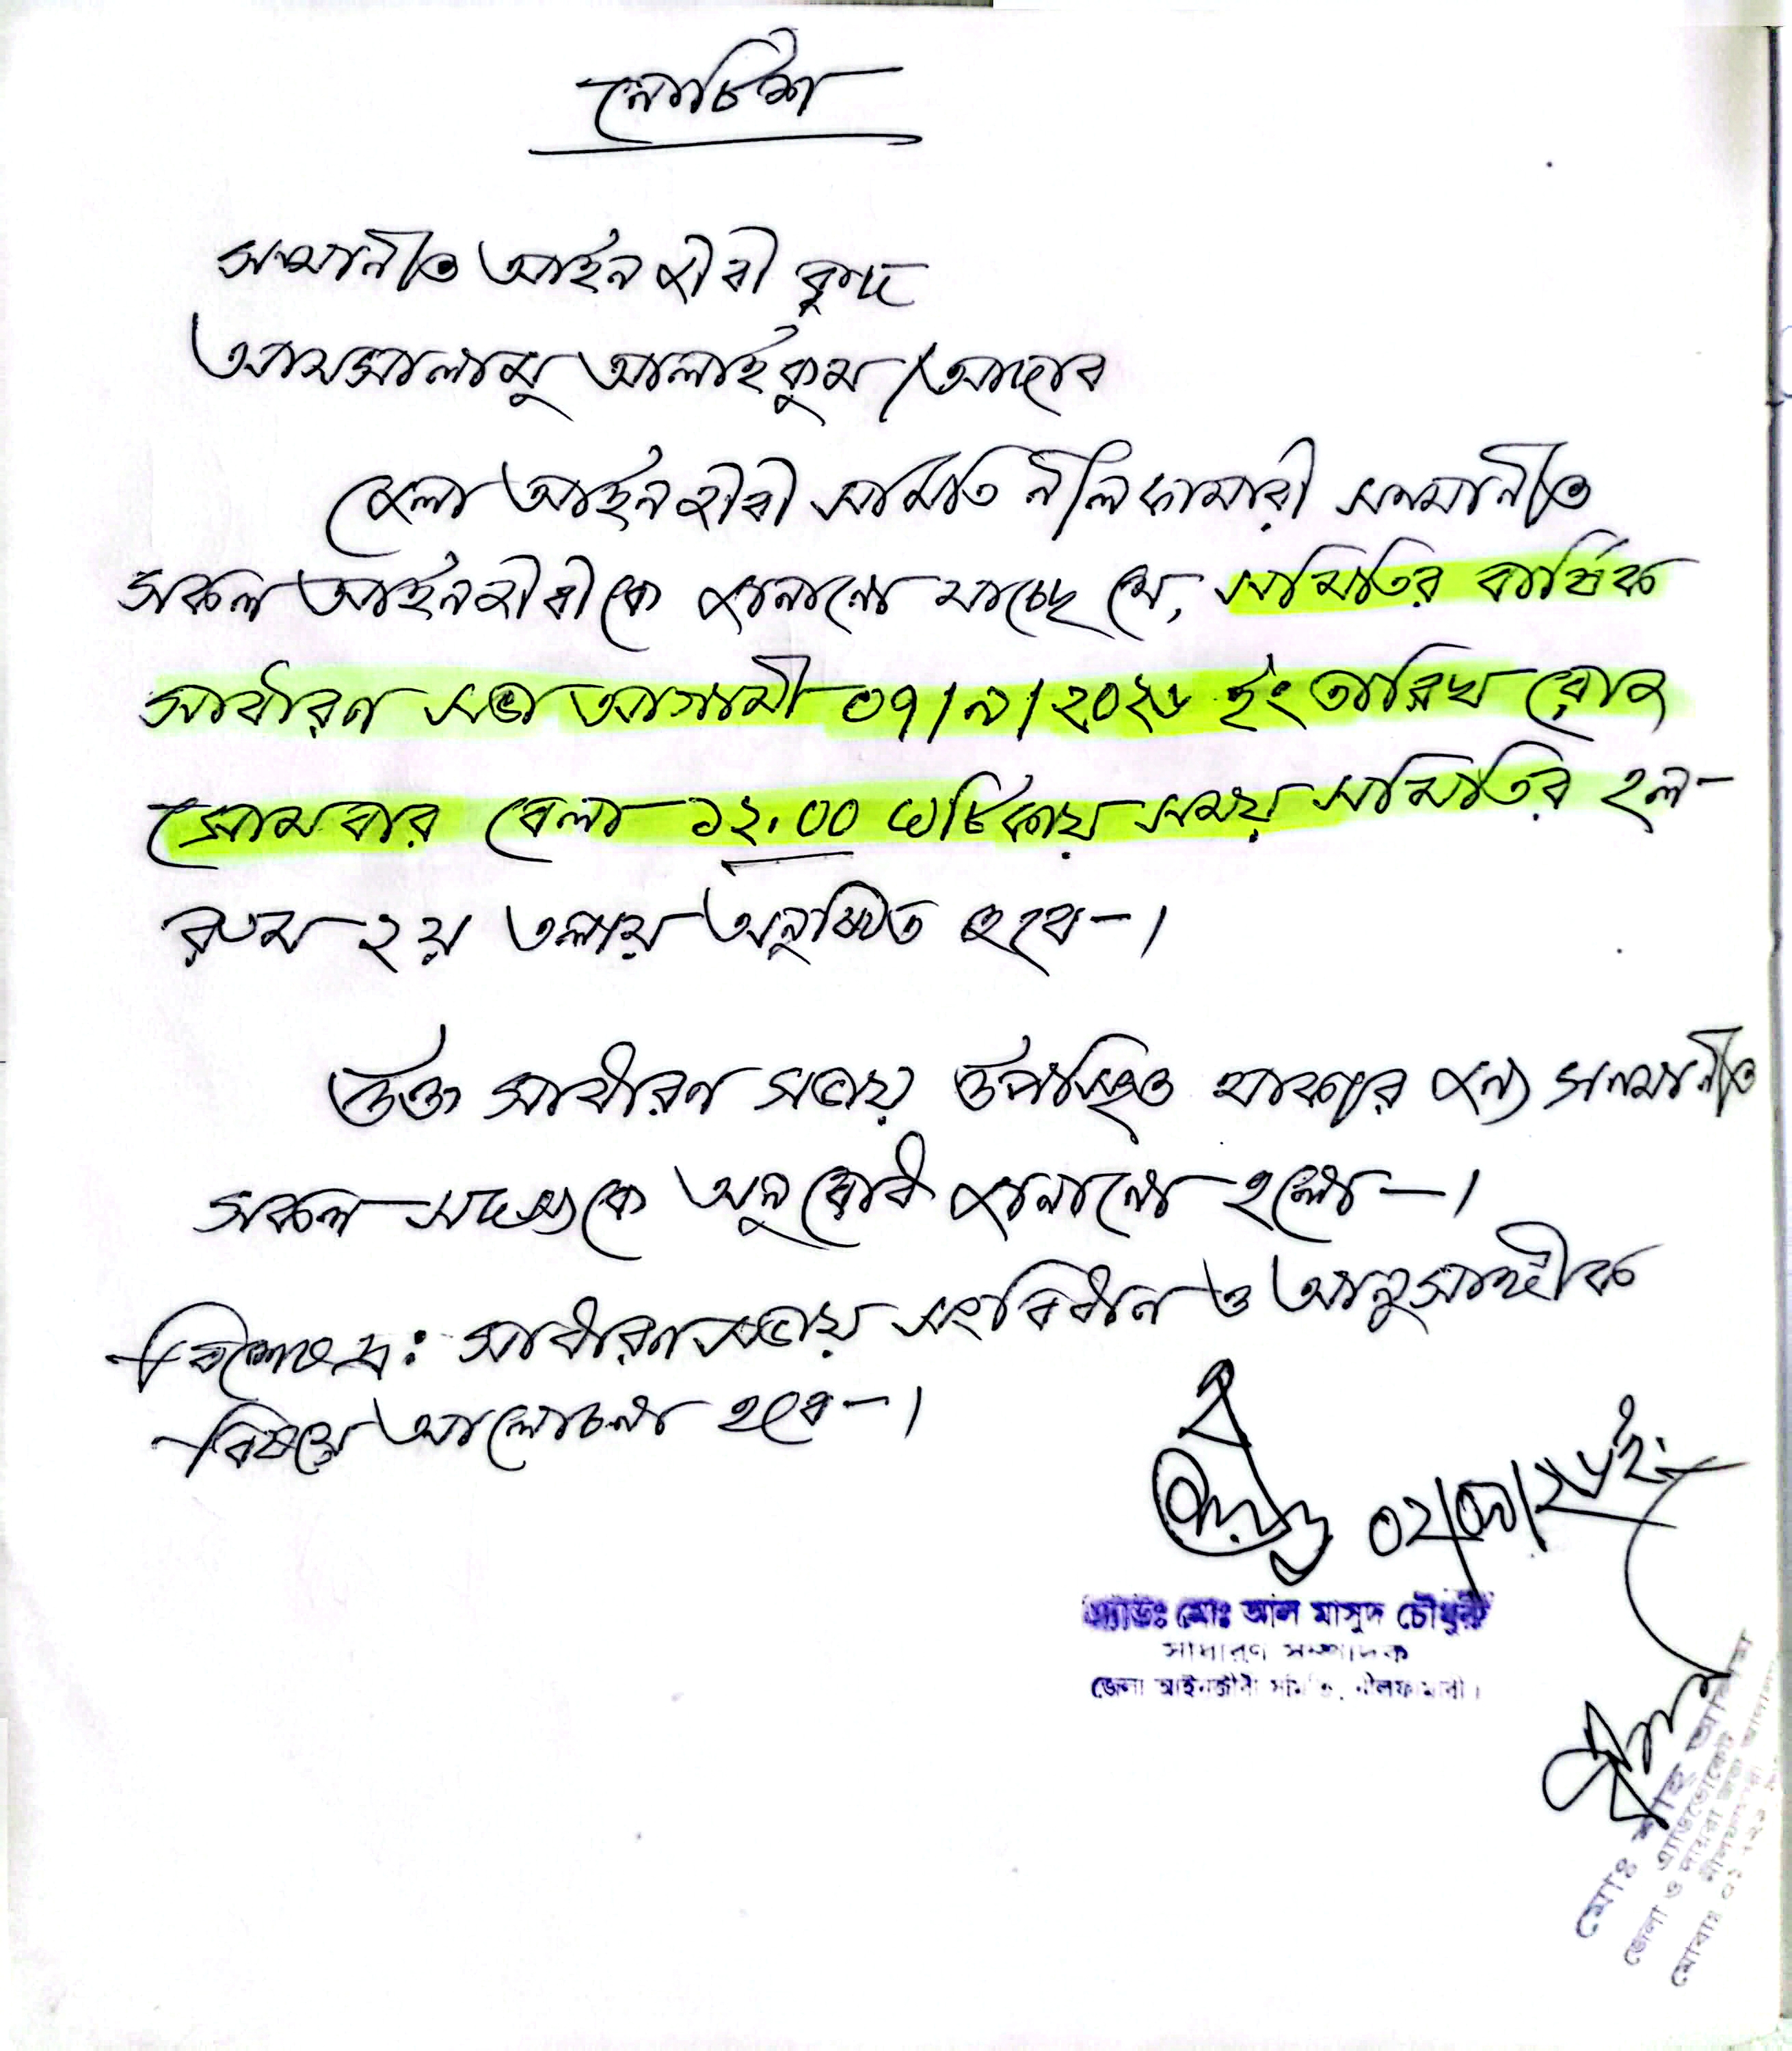 নোটিশ
সম্মানীত আইনজীবী বৃন্দ
আসসালামু আলাইকুম / আদাব
জেলা আইনজীবী সমিতি নীলফামারী সম্মানীত
সকল আইনজীবীকে জানানো যাচ্ছে যে, সমিতির বার্ষিক
সাধারণ সভা আগামী ০৭/৯/২০২৬ ইং তারিখ রোজ
সোমবার বেলা ১২.০০ ঘটিকায় সময় সমিতির হল-
রুম ২য় তলায় অনুষ্ঠিত হবে-।
উক্ত সাধারণ সভায় উপস্থিত থাকার জন্য সম্মানীত
সকল সদস্যকে অনুরোধ জানানো হলো-।
বিশেষ দ্র: সাধারণ সভায় সংবিধান ও আনুসাঙ্গীক
বিষয়ে আলোচনা হবে-।
০২/০৯/২৬ ইং
এ্যাডঃ মোঃ আল মাসুদ চৌধুরী
সাধারণ সম্পাদক
জেলা আইনজীবী সমিতি, নীলফামারী।
মোঃ
এ্যাডভোকেট
জেলা ও দায়রা জজ আদালত
নীলফামারী
মোবাঃ